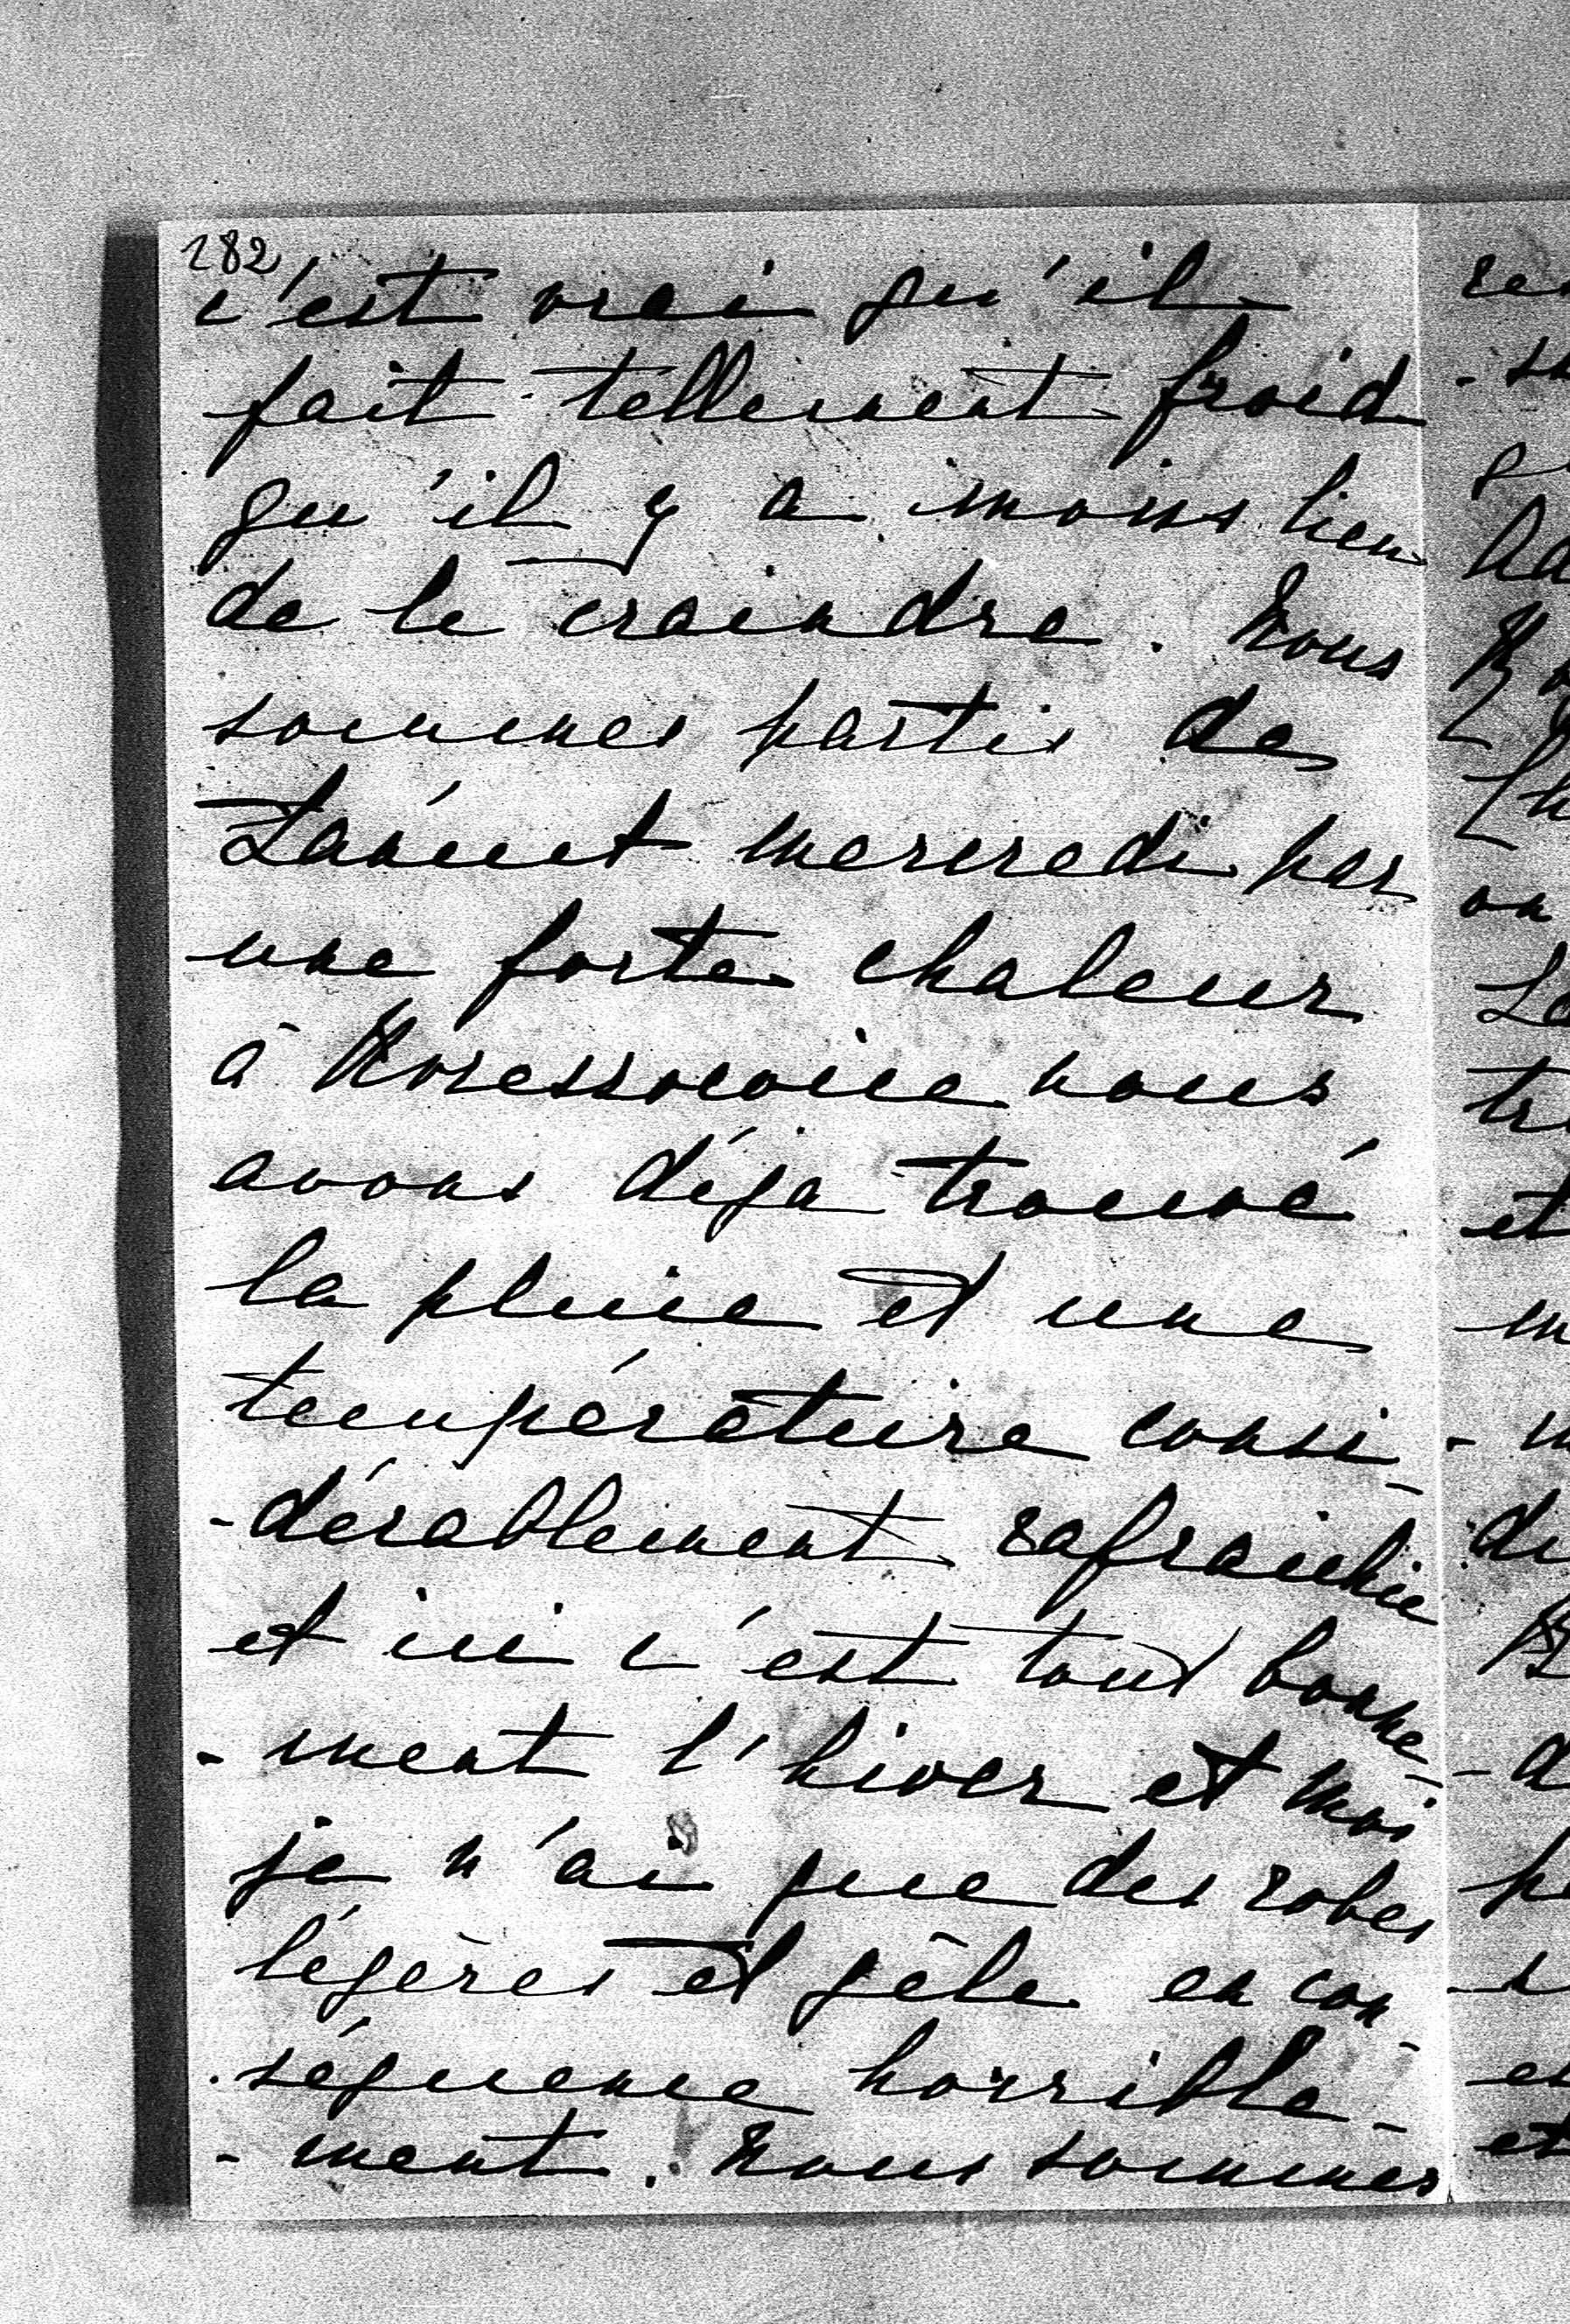 282
c'est vrai qu'il
fait tellement froid
qu'il y a moins lieu
de le craindre. Nous
sommes partis de
mercredi par
une forte chaleur
à nous
avons déja trouvé
la pluie et une
température consi-
-dérablement rafraichie
et ici c'est tout bonne-
-ment l'hiver et moi
je n'ai que des robes
légères et gèle en con-
-séquence horrible-
-ment. Nous sommes